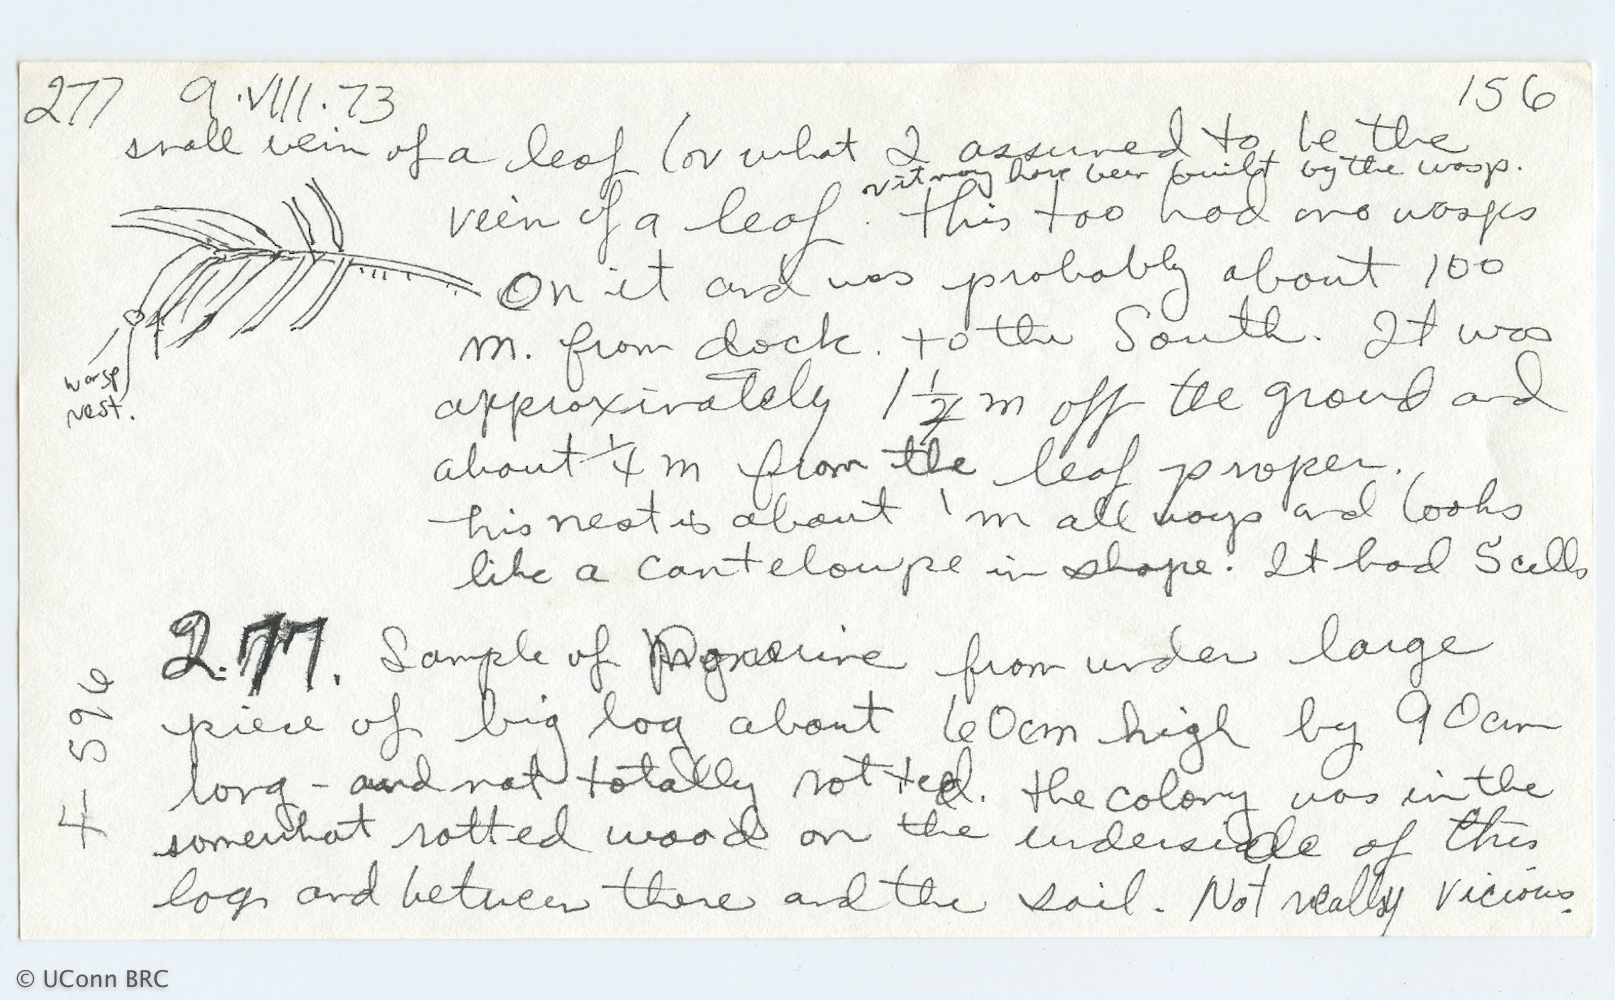 277 9.VIII.73 156
small vein of a leaf (or what I assumed to be the
or it may have been built by the wasp.
vein of a leaf. This too had no wasps
On it and was probably about 100
m. from dock. to the South. It was
approximately 1 1/2 m off the ground and
about 1/4 m from the leaf proper.
this nest is about 1 m all ways and looks
like a canteloupe in shape. It had 5 cells
wasp
nest.
277. Sample of from under large
piece of big log about 60cm high by 90cm
long - and not totally rotted. the colony was in the
somewhat rotted wood on the underside of this
log and between there and the soil. Not really vicious.
596
© UConn BRC